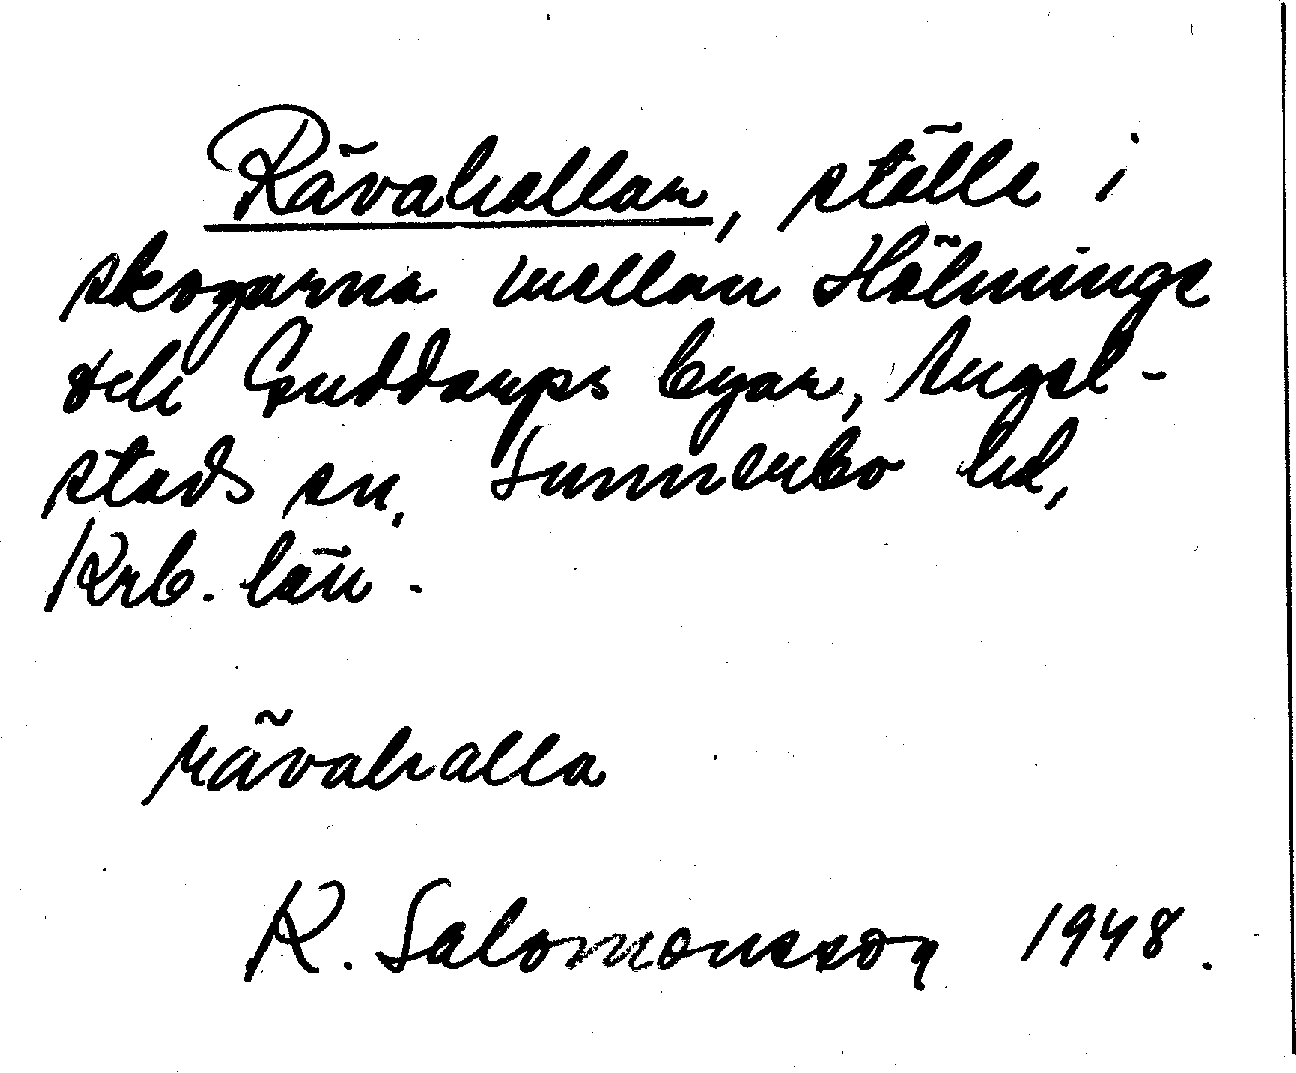 Rävahallar, ställe i
skogarna mellan Hölminge
och Guddarps byar, Angel-
stads sn. Sunnerbo hd,
Krb. län.
rävahalla
R. Salomonsson 1948.